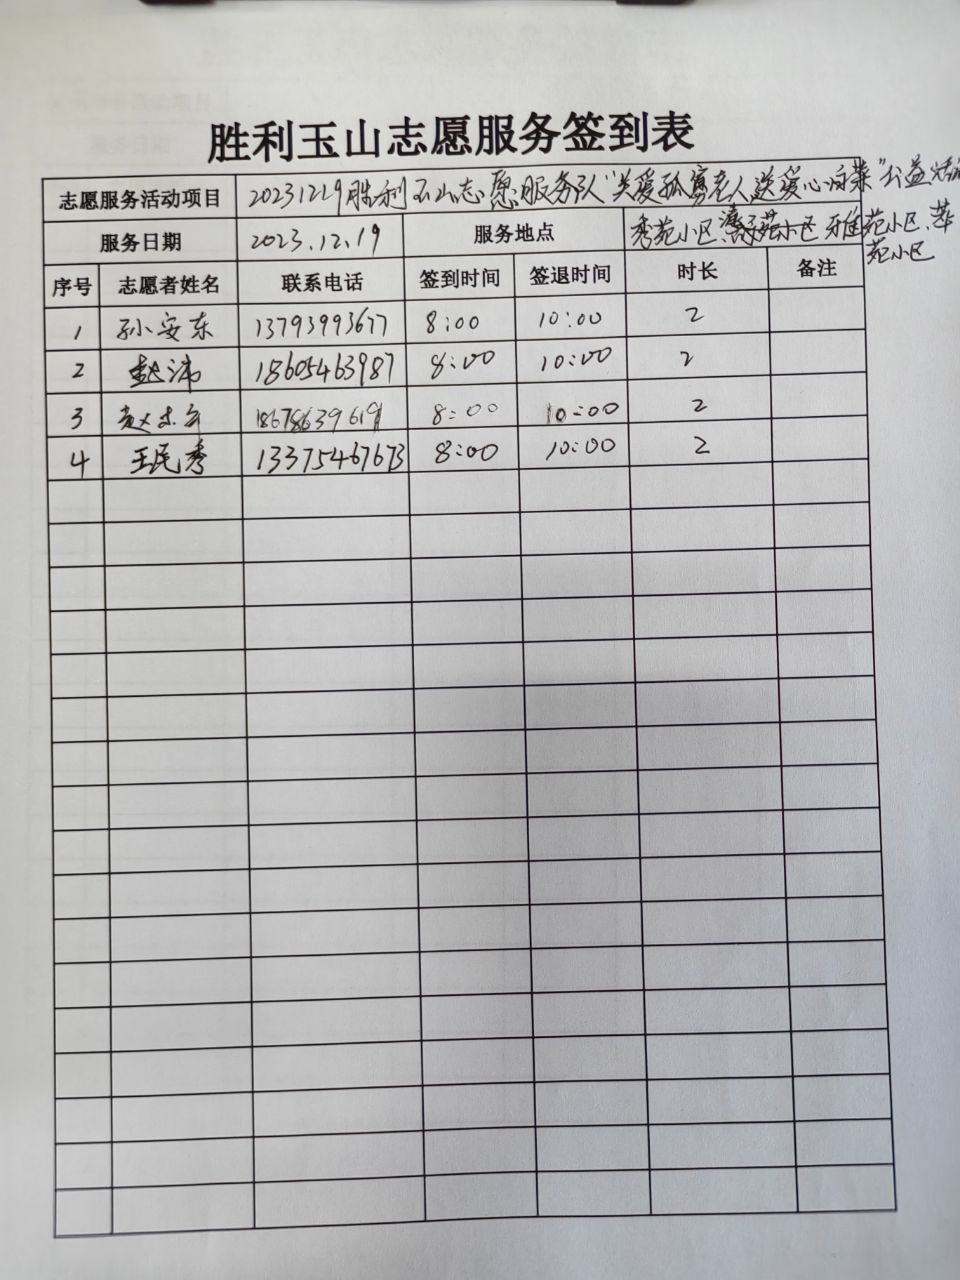 胜利玉山志愿服务签到表
志愿服务活动项目 20231219胜利玉山志愿服务队"关爱孤寡老人送爱心白菜"公益活动
服务日期 2023.12.19 服务地点 秀苑小区、 小区 雅苑小区、苹
苑小区
序号 志愿者姓名 联系电话 签到时间 签退时间 时长 备注
1 孙安东 13793993677 8:00 10:00 2
2 赵沛 18605463987 8:00 10:00 2
3 18678639619 8:00 10:00 2
4 王民秀 13375467673 8:00 10:00 2